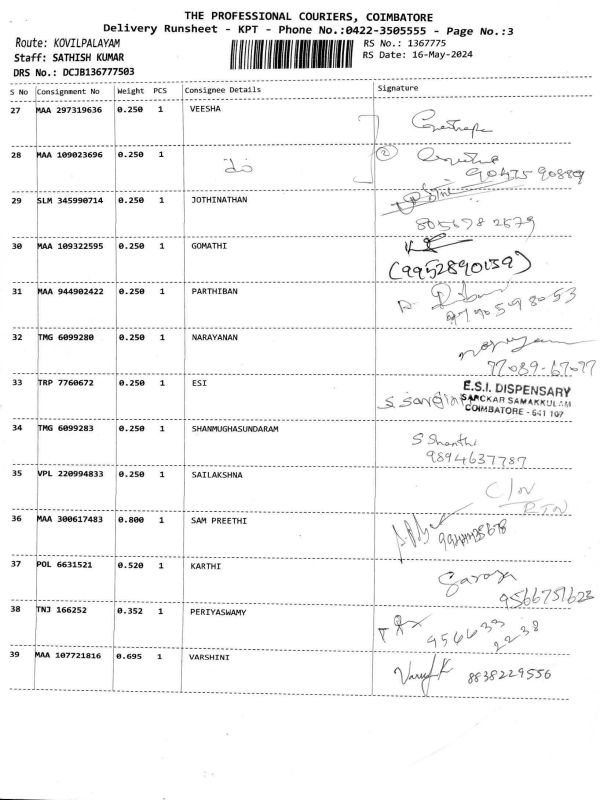 THE PROFESSIONAL COURIERS, COIMBATORE
Delivery Runsheet - KPT - Phone No.:0422-3505555 - Page No.:3
Route: KOVILPALAYAM
RS No.: 1367775
Staff: SATHISH KUMAR
RS Date: 16-May-2024
DRS No.: DCJB136777503
S No Consignment No Weight PCS Consignee Details Signature
27 MAA 297319636 0.250 1 VEESHA
28 MAA 109023696 0.250 1 do 2
90475 90889
29 SLM 345990714 0.250 1 JOTHINATHAN
805698 2579
30 MAA 109322595 0.250 1 GOMATHI
(9952890159)
31 MAA 944902422 0.250 1 PARTHIBAN
32 TMG 6099280 0.250 1 NARAYANAN
77089-67077
33 TRP 7760672 0.250 1 ESI
E.S.I. DISPENSARY
SARCKAR SAMAKKULAM
COIMBATORE - 641 107
34 TMG 6099283 0.250 1 SHANMUGHASUNDARAM
S Shanthi
9894637787
35 VPL 220994833 0.250 1 SAILAKSHNA
C/N
RTN
36 MAA 300617483 0.800 1 SAM PREETHI
37 POL 6631521 0.520 1 KARTHI
9566751623
38 TNJ 166252 0.352 1 PERIYASWAMY
956639
2238
39 MAA 107721816 0.695 1 VARSHINI
8838229556